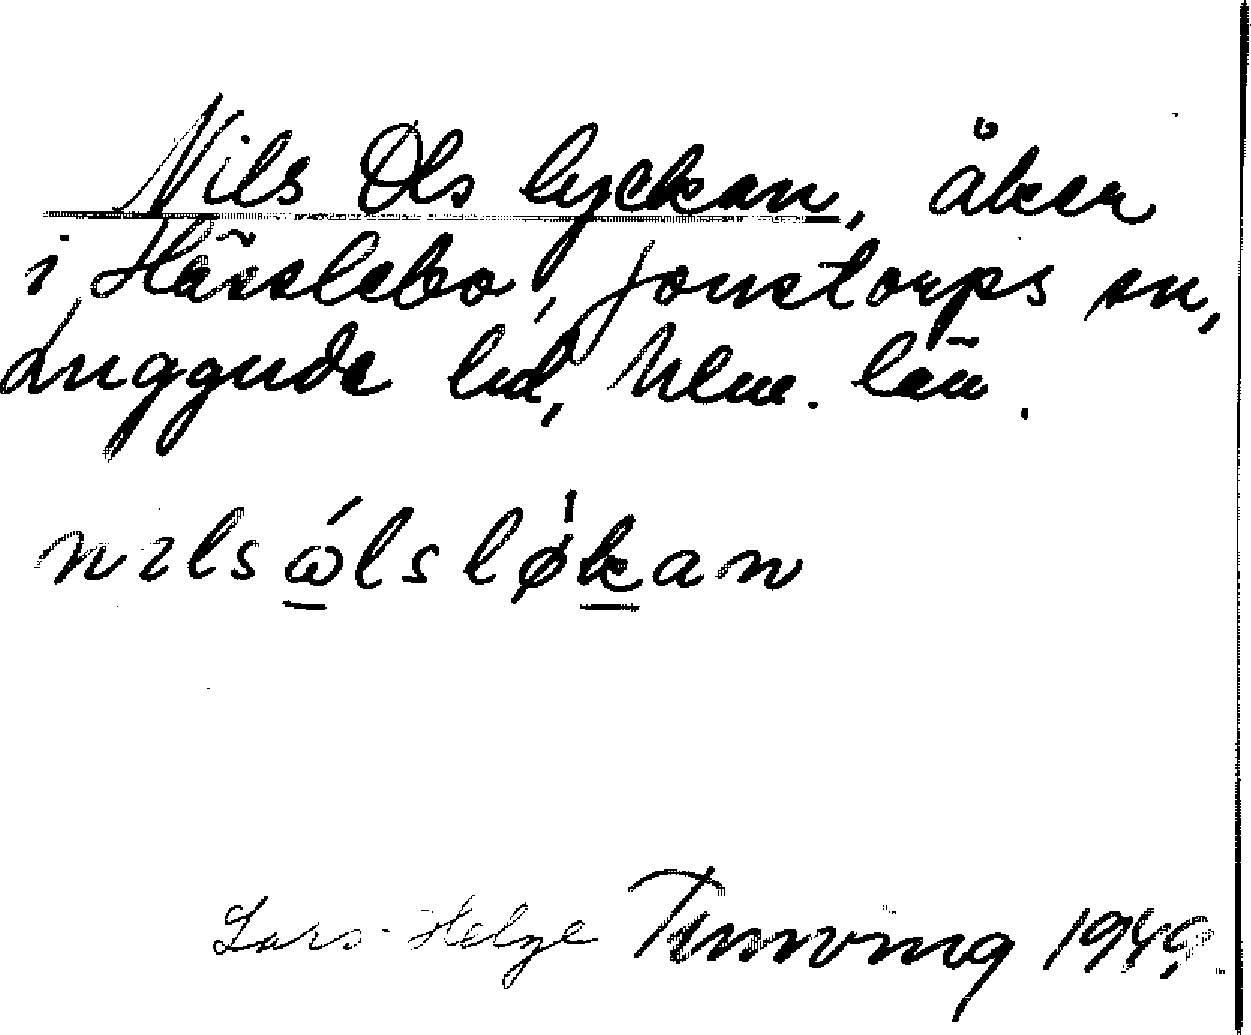 Nils Ols lyckan, åker
i Hässlebo, Jonstorps sn,
Luggude hd, Mlm. län.
nɪlsώ̲lsløk̲an
Lars-Helge 1949.